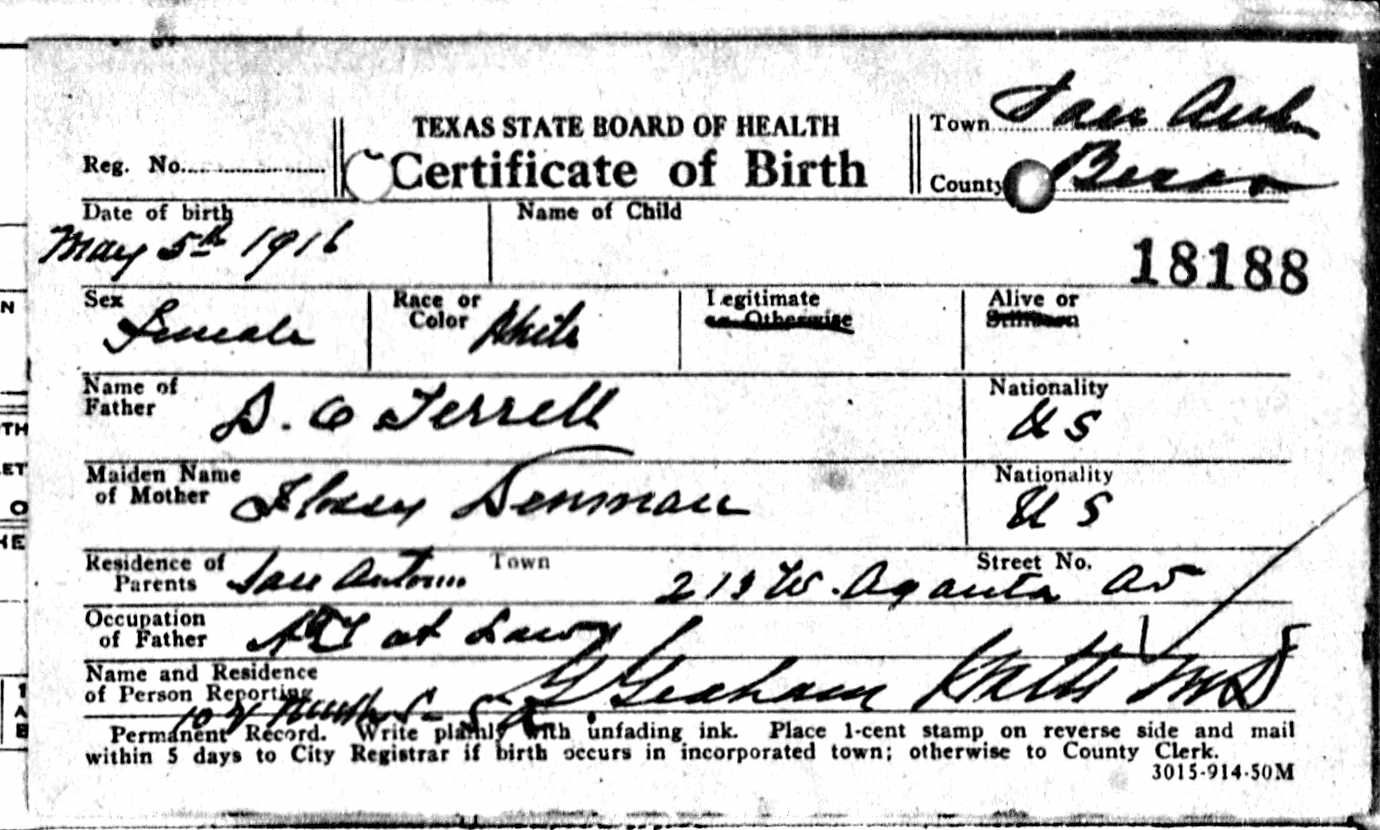 TEXAS STATE BOARD OF HEALTH
Certificate of Birth
Reg. No.
Town San Anto
County Bexar
Date of birth
May 5th 1916
Name of Child
18188
Sex Female
Race or Color White
Legitimate or Otherwise
Alive or Stillborn
Name of Father D. C Terrell
Nationality U S
Maiden Name of Mother Flossy Denman
Nationality U S
Residence of Parents San Antonio Town 213 W. Agarita Av Street No.
Occupation of Father Att at Law
Name and Residence of Person Reporting G Graham Watts MD
Permanent Record. Write plainly with unfading ink. Place 1-cent stamp on reverse side and mail
within 5 days to City Registrar if birth occurs in incorporated town; otherwise to County Clerk.
3015-914-50M